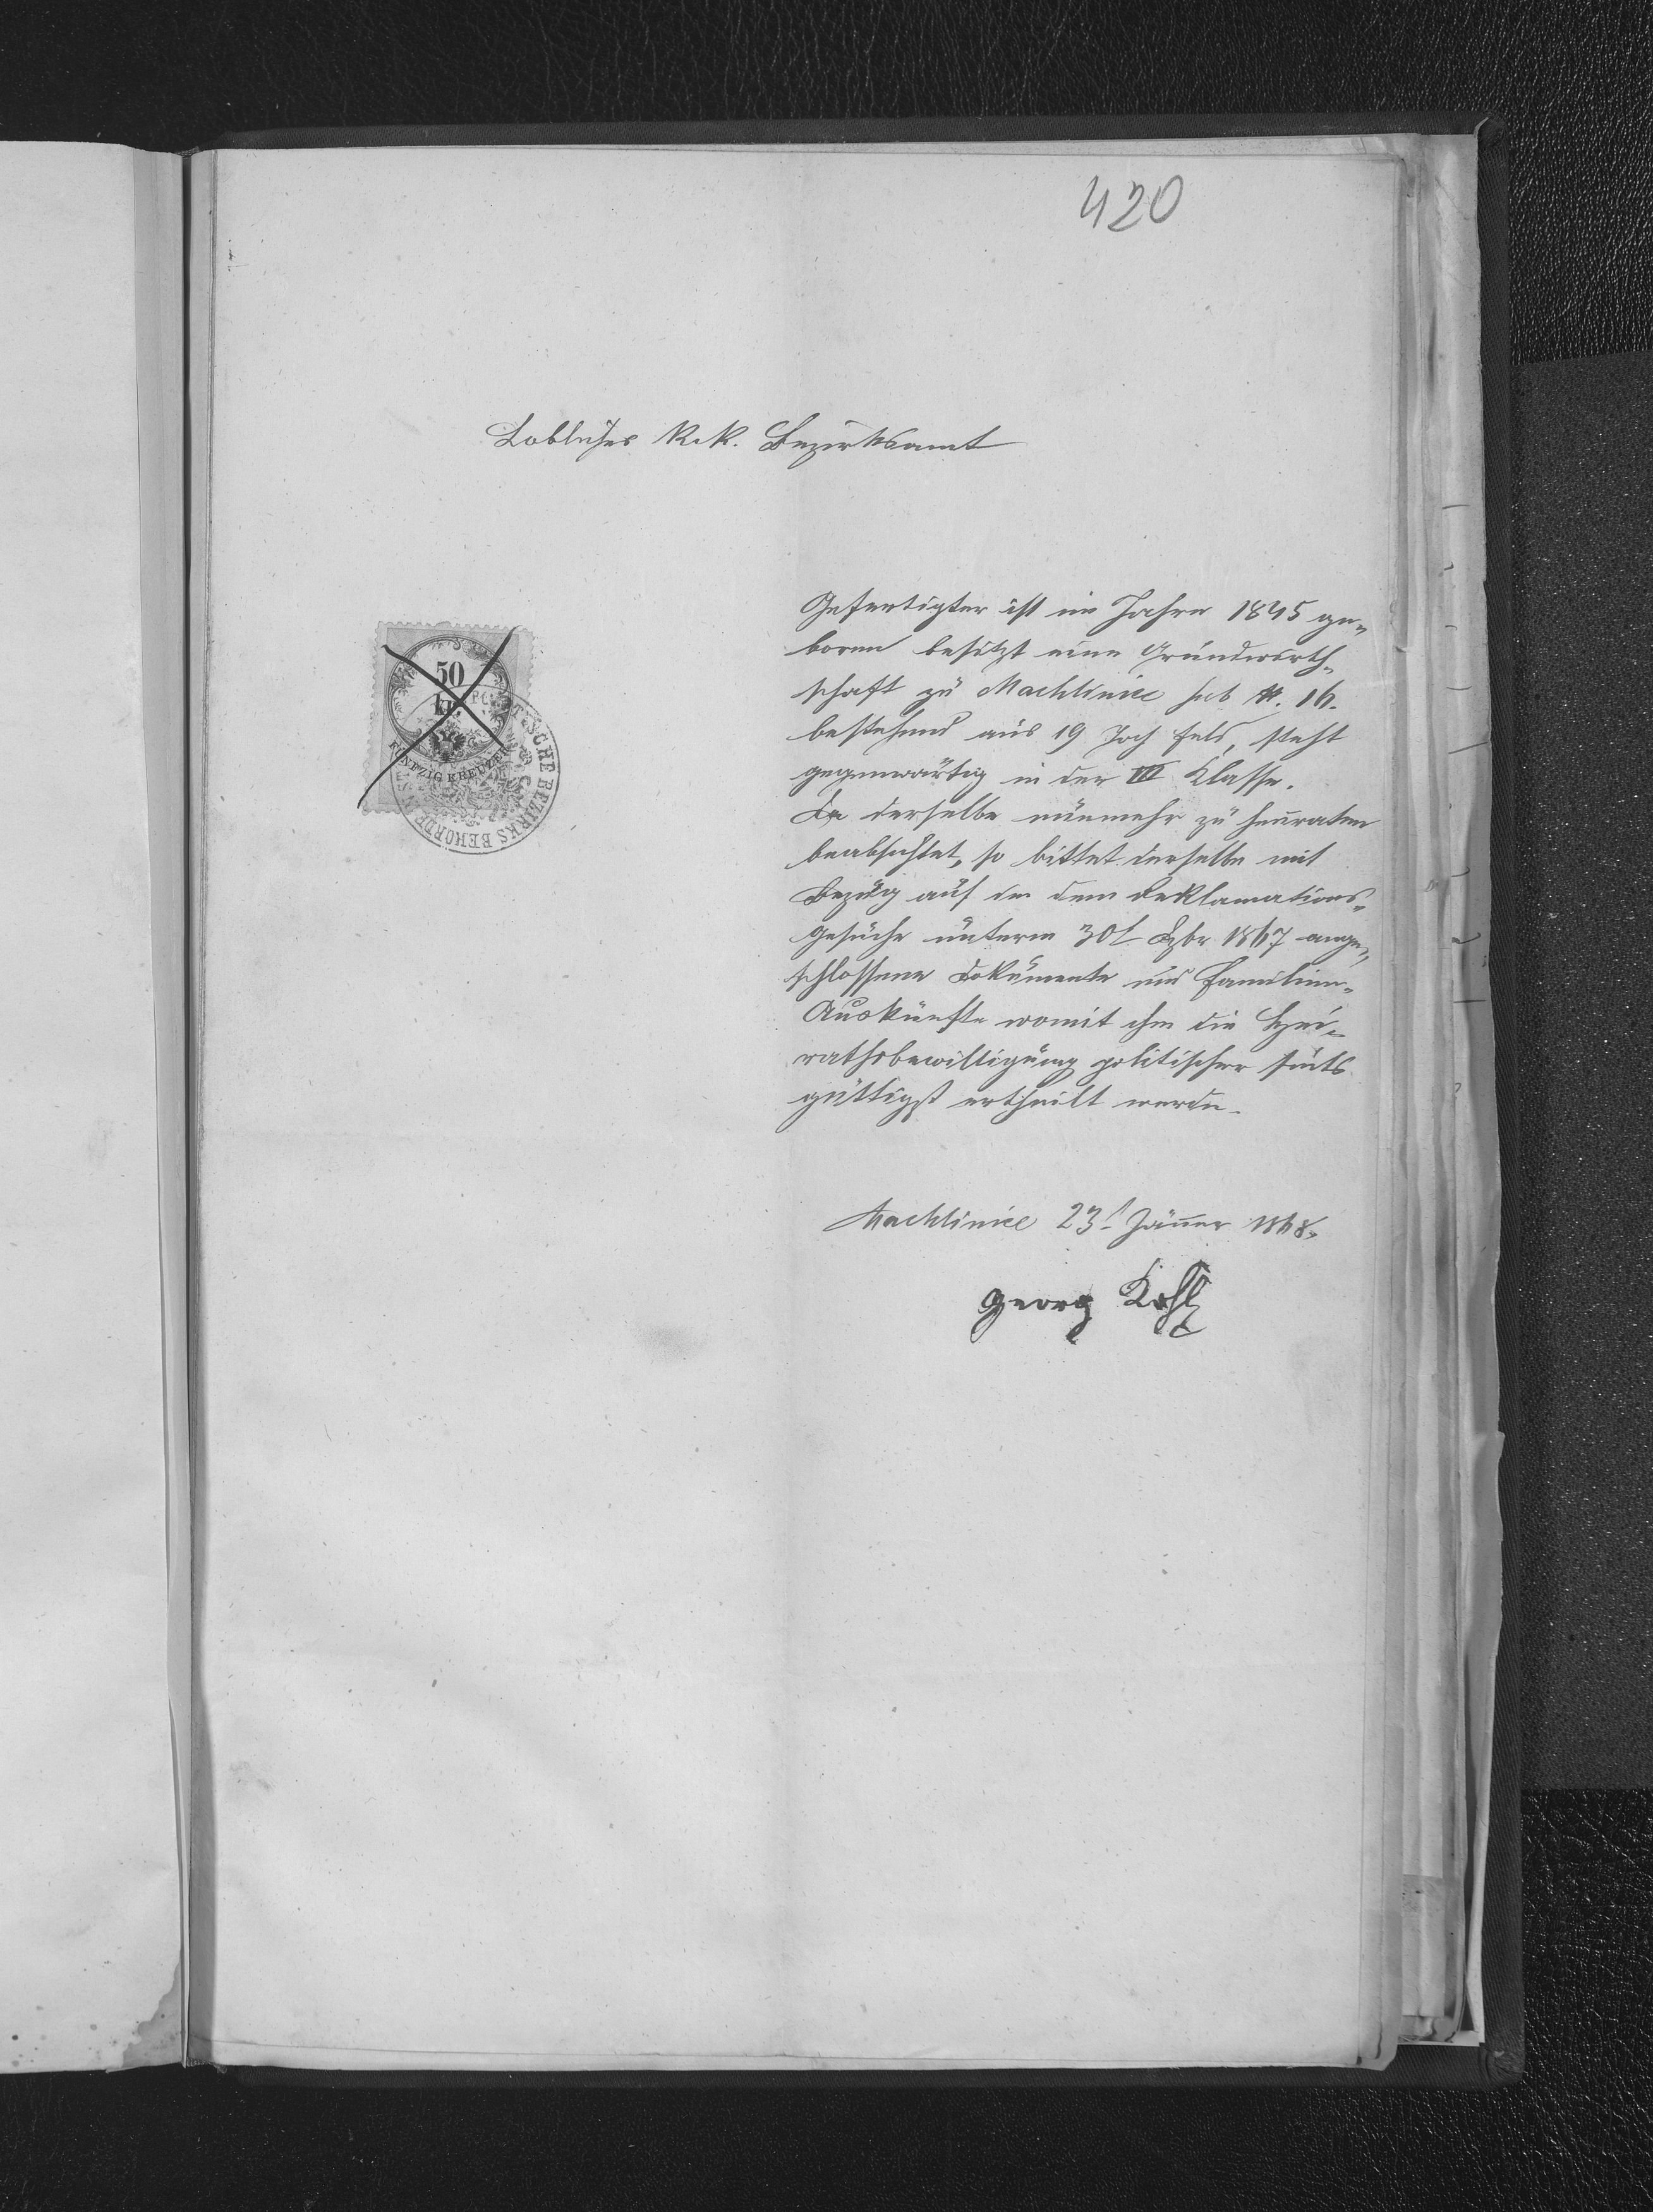 420
Löbliches k.k. Bezirksamt
Gefertigter ist im Jahre 1845 ge„
boren besitzt eine Grundwirth„
schaft zu Machtinice sub N. 16.
bestehend aus 19 Joch Feld, steht
gegenwärtig in der III Klasse.
Da derselbe nunmehr zu heuraten
beabsichtet, so bittet derselbe mit
Bezug auf die dem Reklamations„
gesuche unterm 30t Dzbr 1867 ange„
schlossene Dokumente und Familien„
Auskünfte womit ihm die Hei„
rathsbewilligung politischer seits
güttigst ertheilt werde.
Machtinice 23t Jänner 1868.
Georg Kohl
50
kr.
FÜNFZIG KREUZER
POLITISCHE BEZIRKS BEHÖRDE